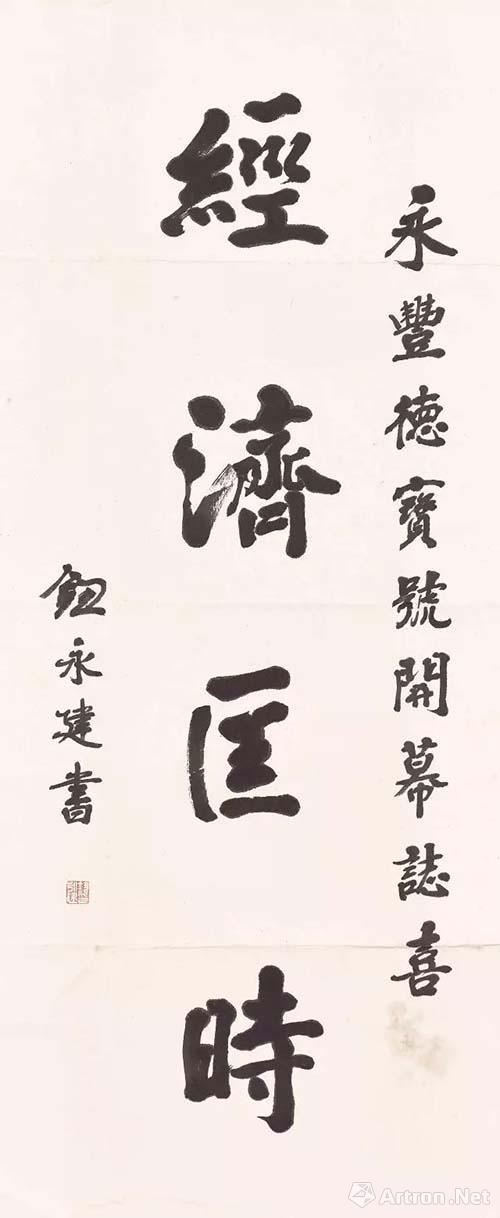 永豐德寶號開幕誌喜
經濟匡時
鈕永建書
Artron.Net